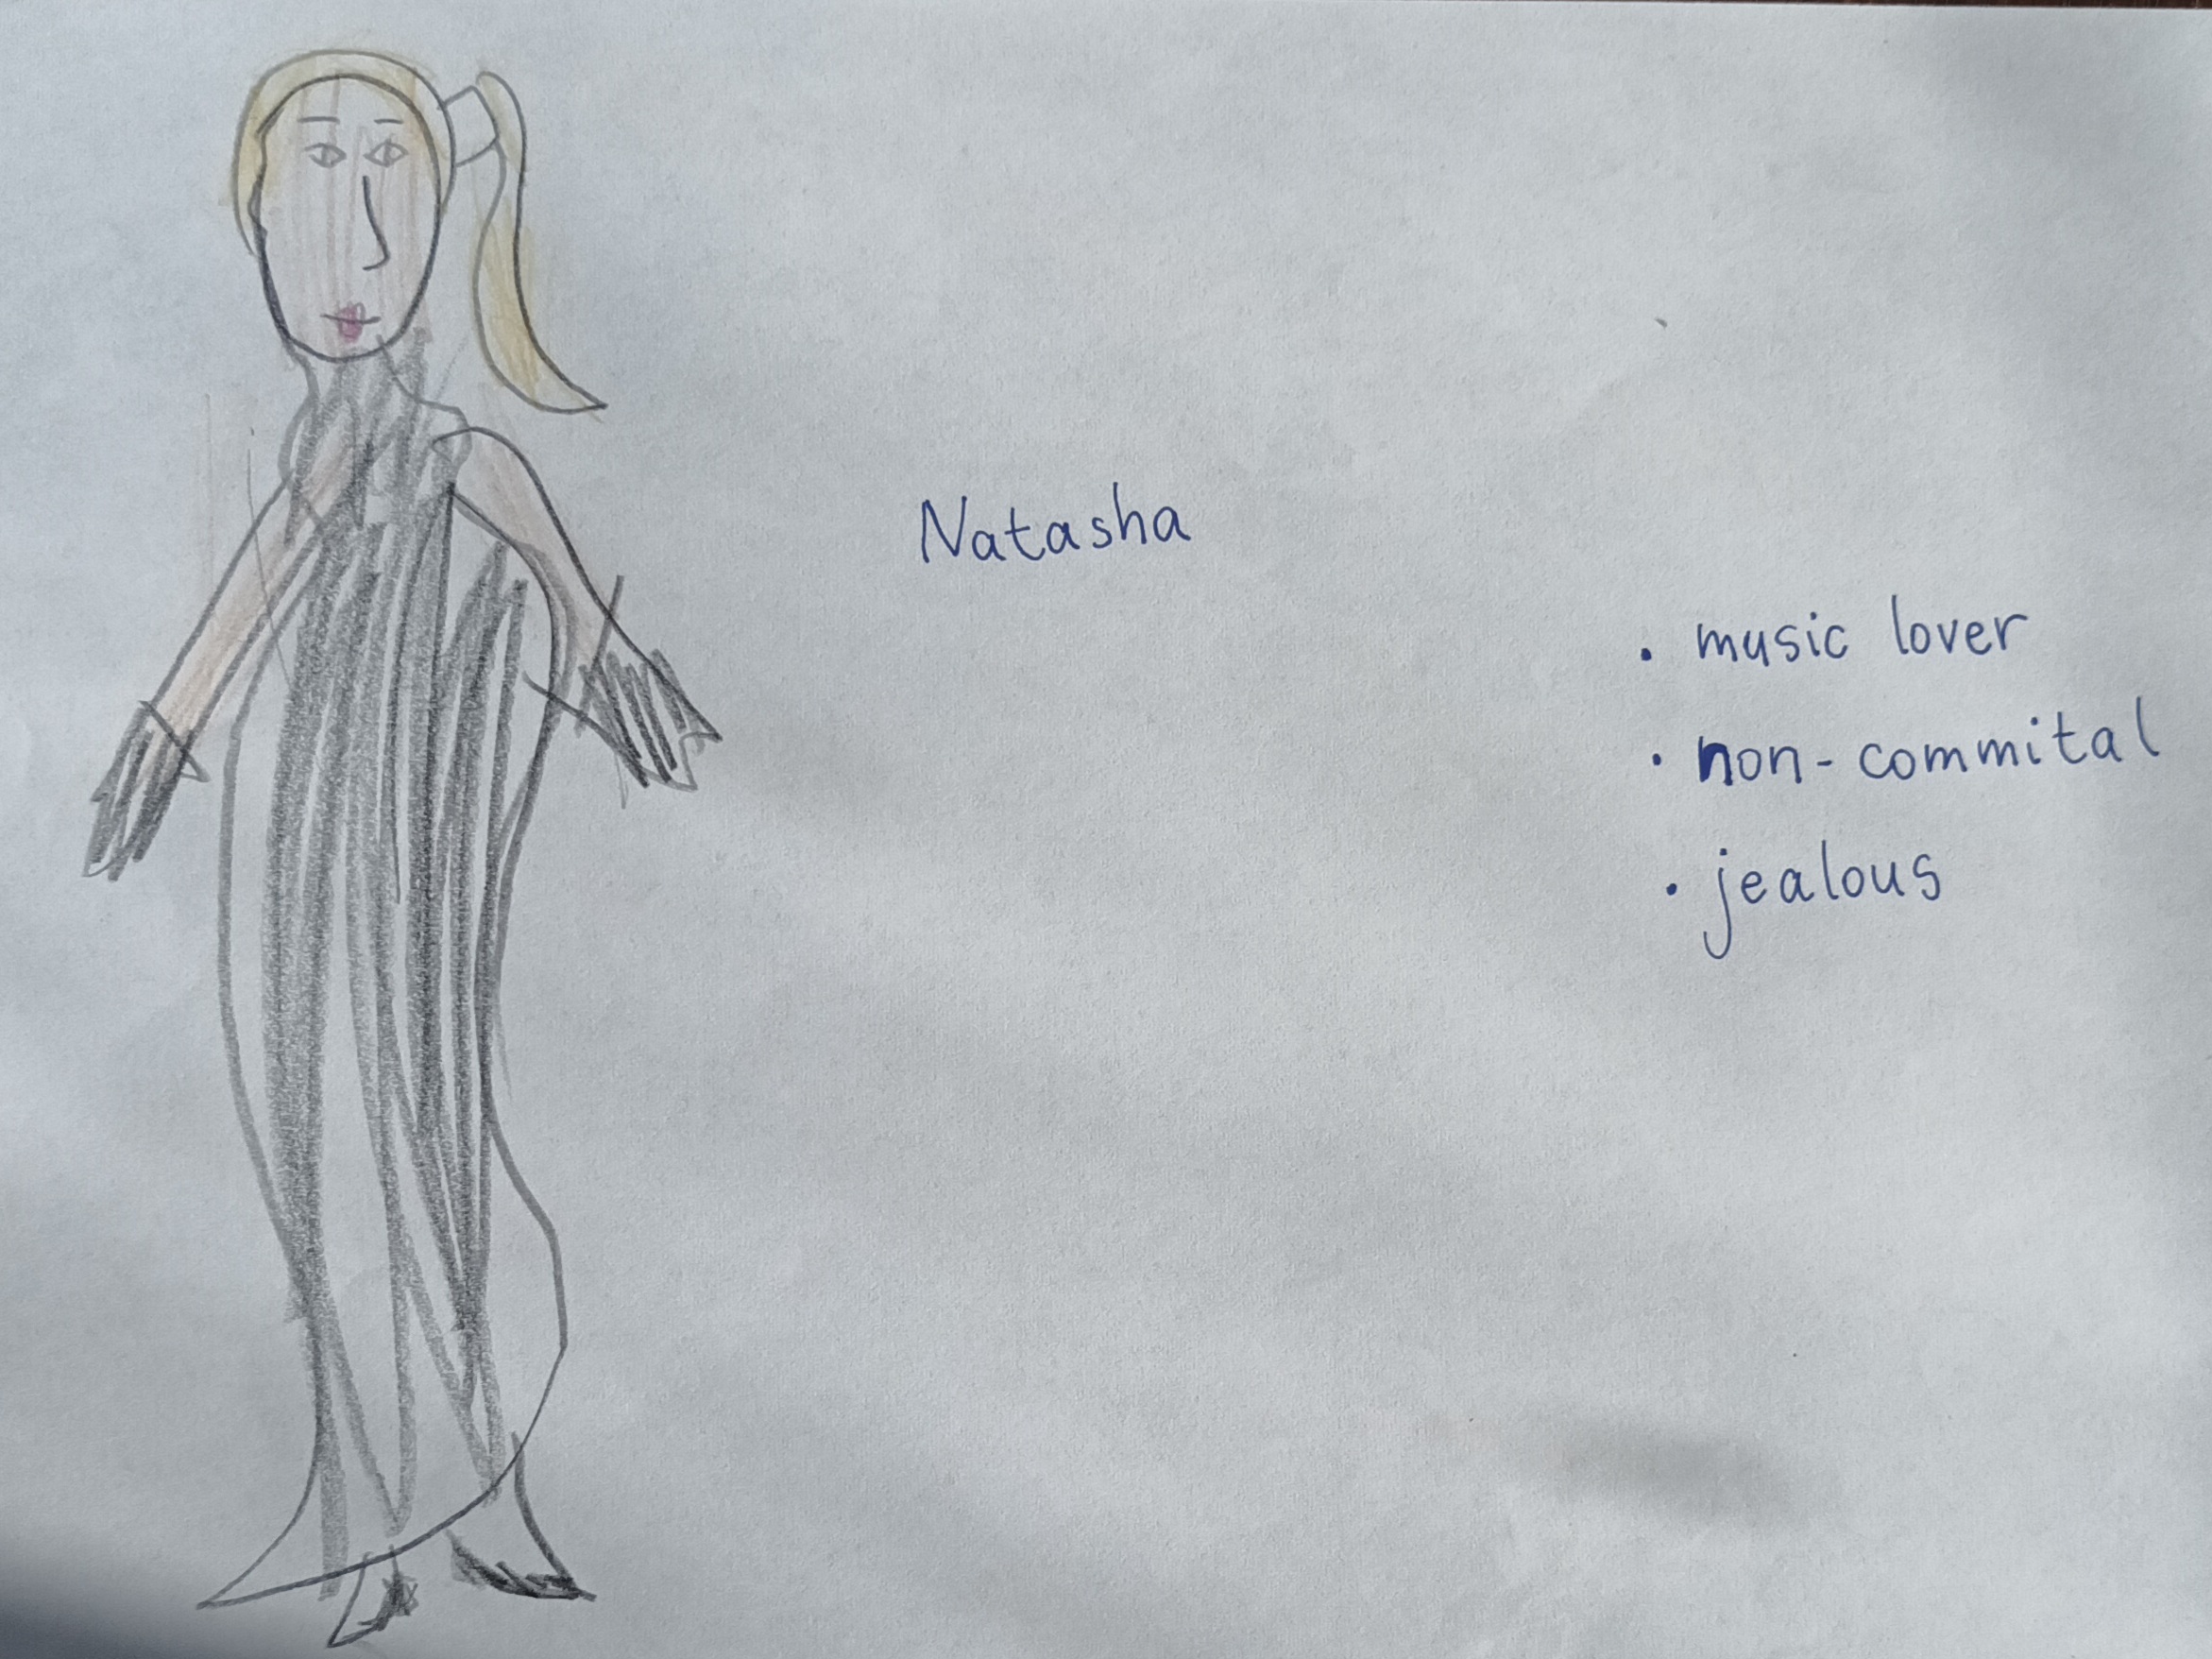 Natasha
. music lover
. non-commital
. jealous